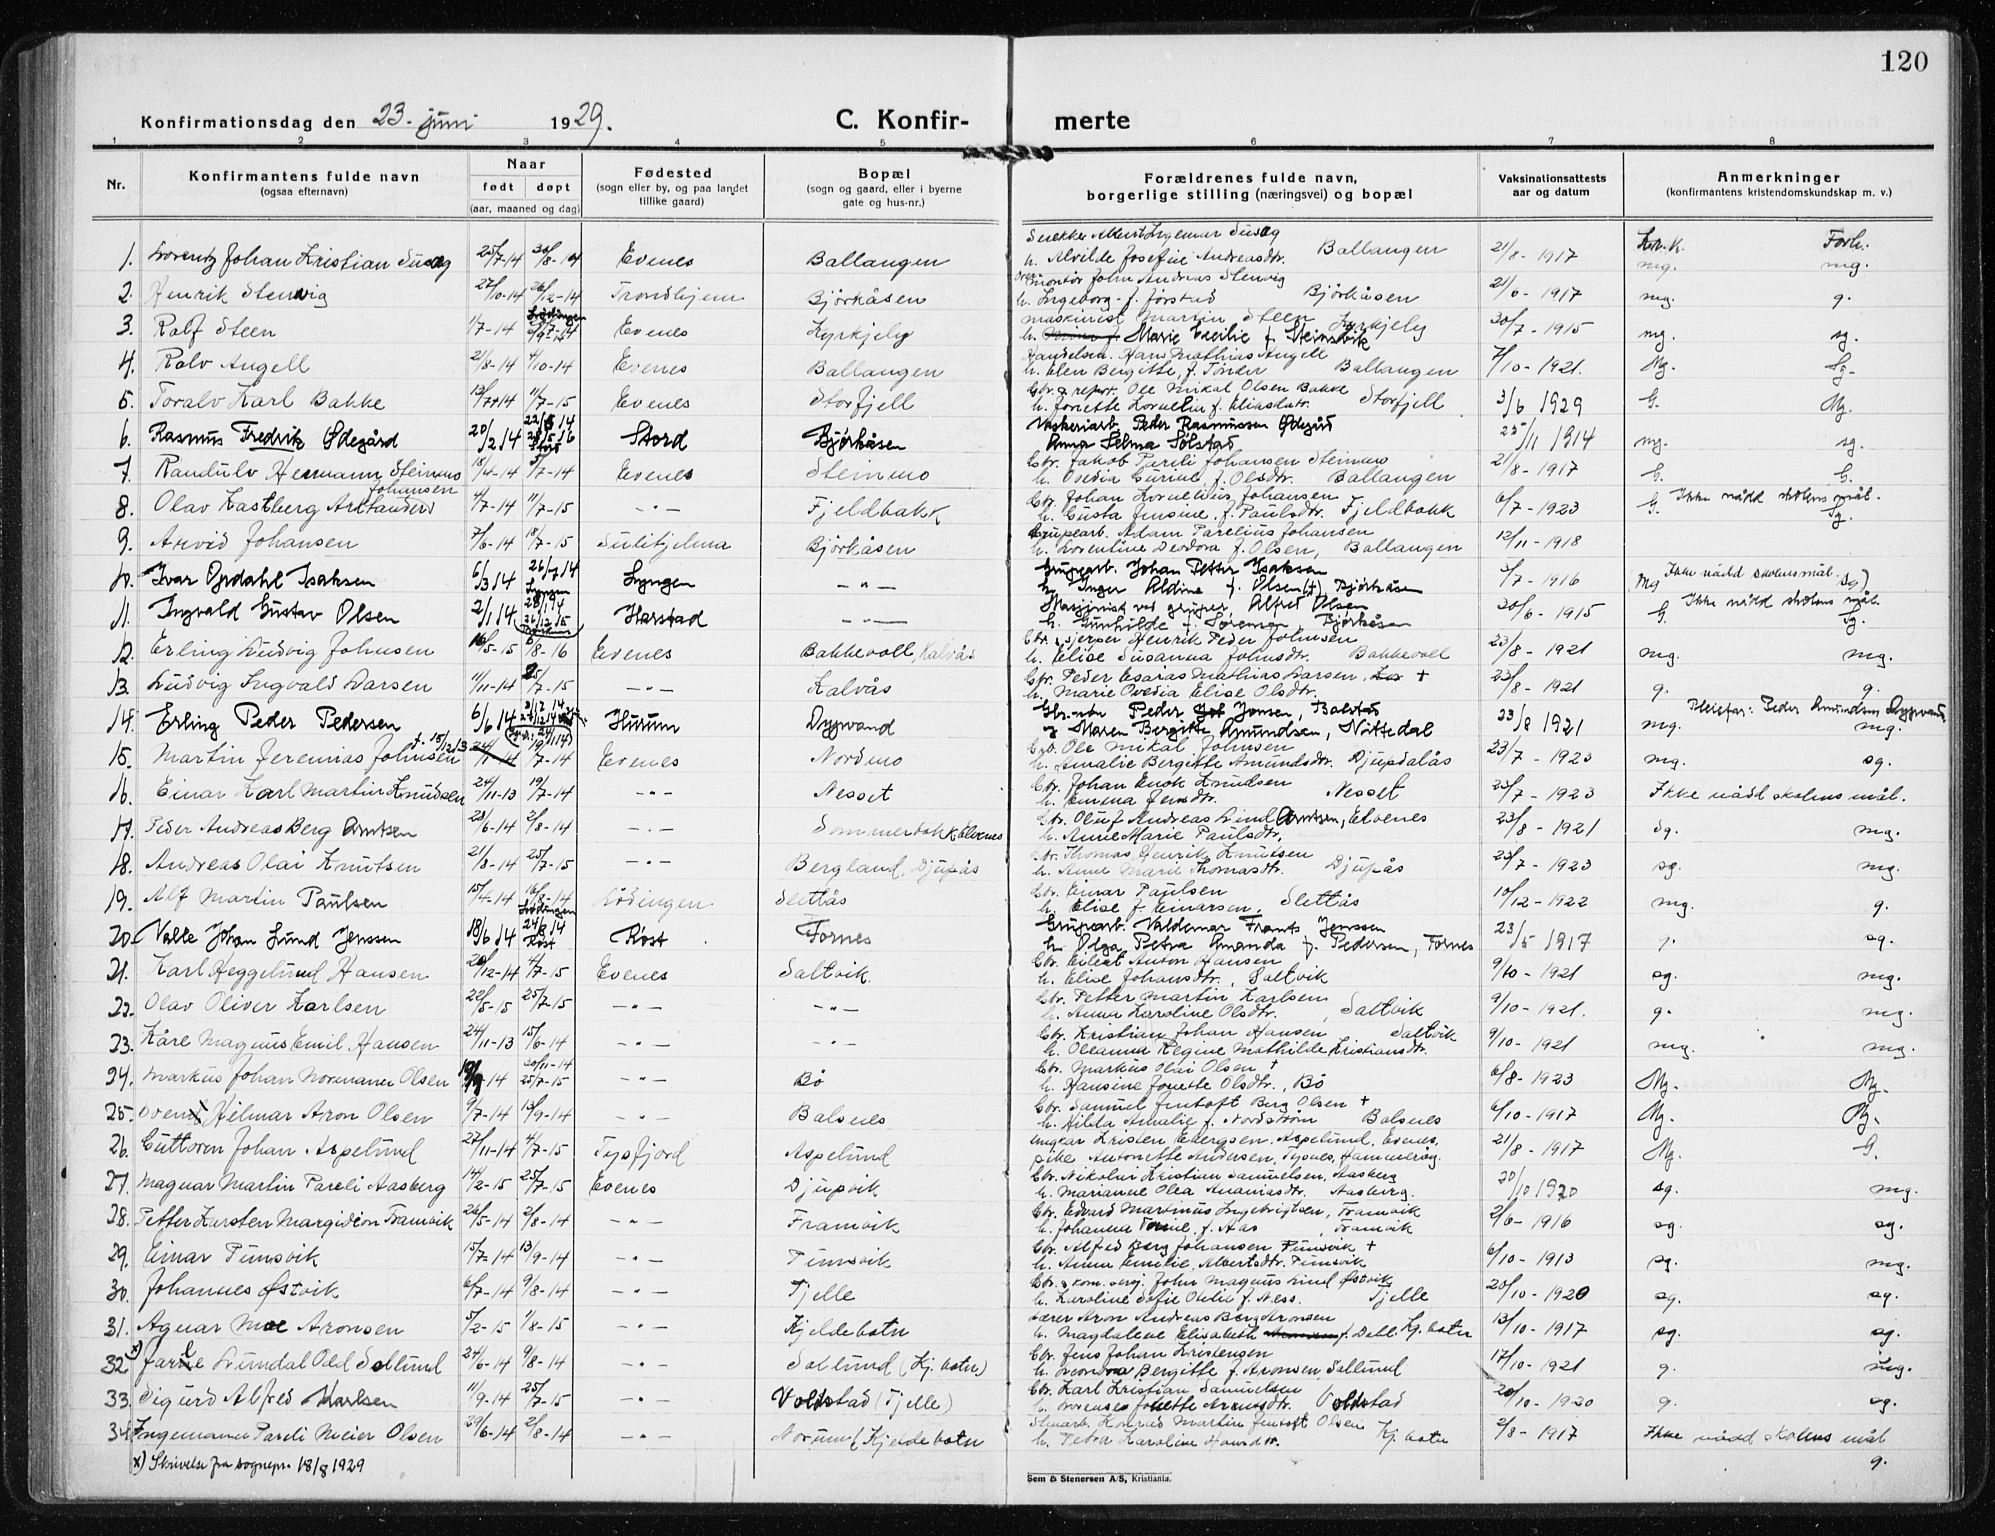 120
Konfirmationsdag den 23. juni 1929.
C. Konfirmerte
1 2 3 4 5 6 7 8
Nr.
Konfirmantens fulde navn
(ogsaa efternavn)
Naar
født døpt
(aar, maaned og dag)
Fødested
(sogn eller by, og paa landet
tillike gaard)
Bopæl
(sogn og gaard, eller i byerne
gate og hus-nr.)
Forældrenes fulde navn,
borgerlige stilling (næringsvei) og bopæl
Vaksinationsattests
aar og datum
Anmerkninger
(konfirmantens kristendomskundskap m. v.)
1. Johan Kristian 25/7-14 Evenes Ballangen Ballangen 21/8-1917 mg. mg.
h. Alvilde Josefine Andreasdtr.
2. Henrik Stenvig 27/10-14 26/12-14 Trondhjem Bjørkåsen montør John Andreas Stenvig Bjørkåsen 21/6-1917 mg. g.
3. Rolf Steen 1/7-14 Evenes Kyrkjeby maskinist Martin Steen Kyrkjeby 30/7-1915 mg. sg.
h. Marie Cecilie f. Steinsvik
4. Ralv Angell 21/8-14 4/10-14 Evenes Ballangen Hans Mathias Angell 7/10-1921. Mg. Sg.
h. Elen Bergitte, f. Tønder Ballangen
5. Toralv Karl Bakke 13/7-14 11/7-15 Evenes Storfjell Ole Mikal Olsen Bakke 3/6 1929 G. Mg.
h. Jonette Kornelia f. Eliasdatr. Storfjell
6. Rasmus Fredrik Ødegård 20/2 14 Stord Bjørkåsen Vaskeriarb. Peder Rasmussen Ødegård 25/11 1914 mg. sg.
Anna Selma Sølstad
7. Randulv Hermann Steinmo Johansen 18/4-14 5/7-14 Evenes Steinmo Gbr. Jakob Pareli Johansen Steinmo 21/8-1917 G. G.
h. Ovedia Gurine, f. Olsdtr. Ballangen
8. Olav Kastberg 4/7-14 11/7-15 -"- Fjeldbakk Gbr. Johan Kornelius Johansen 6/7-1923 G. Ikke nådd skolens mål. Sg.
h. Gusta Jensine, f. Paulsdtr. Fjeldbakk
9. Arvid Johansen 7/6-14 18/7-15 Sulitjelma Bjørkåsen Grupearb. Adam Parelius Johansen 12/11-1918
h. Lorentine Deodora f. Olsen, Ballangen
10. Ivar Opdahl Isaksen 6/3 14 26/7 14 Lyngen -"- Grupearb. Johan Petter Isaksen 5/7-1916 Mg Ikke nådd skolens mål. Sg)
h. Inger Aldine f. Olsen (+) Bjørkåsen
11. Ingvald Gustav Olsen 2/1 14 Harstad -"- Maskinist ved gruber, Alfred Olsen 30/6-1915 G. Ikke nådd skolens mål. Sg.
h. Gunhilde f. Sørensen, Bjørkåsen
12. Erling Ludvig Johnsen 16/5-15 6/8-16 Evenes Bakkevoll, Kalvås Henrik Peder Johnsen 23/8-1921 mg. mg.
h. Elise Susanna Johnsdtr. Bakkevoll
13. Ludvig Ingvald Larsen 11/11-14 25/7-15 -"- Kalvås Gbr. Peder Esaias Mathias Larsen + 23/8-1921 g. g.
h. Marie Ovedia Elise Olsdtr.
14. Erling Peder Pedersen 6/6 14 Hurum Dypvand Peder Jensen, Balestad 23/8 1921 mg. Pleiefar: Peder Amundsen Dypvand mg.
g Maren Bergitte Amundsen, Nittedal
15. Martin Jeremias Johnsen f. 15/12 13 19/7-14 Evenes Nordmo Gbr. Ole Mikal Johnsen 23/7-1923 mg. sg.
h. Amalie Bergitte Amundsdtr. Djupdalås
16. Einar Karl Martin Knudsen 24/11-13 19/7-14 -"- Nesset Gbr. Johan Enok Knudsen 23/7-1923 Ikke nådd skolens mål.
h. Emma Jensdtr. Nesset
17. Peder Andreas Berg Arntsen 23/6-14 2/8-14 -"- Sommerbakk Elvenes Gbr. Oluf Andreas Lind Arntsen, Elvenes 23/8-1921 Sg. mg.
h. Anne Marie Paulsdtr,
18. Andreas Olai Knutsen 21/8-14 25/7-15 -"- Bergland, Djupås Gbr. Thomas Henrik Knutsen 23/7-1923 sg. mg.
h. Anne Marie Thomasdtr. Djupås
19. Alf Martin Paulsen 15/4-14 16/8-14 Lødingen Lødingen Slettås Gbr. Einar Paulsen 10/12-1922 mg. g.
h. Elise f. Einarsen, Slettås
20. Valle Johan Lund Jenssen 18/6 14 Røst Røst Fornes Grupearb. Valdemar Frants Jenssen 23/5 1917 g. sg.
h. Olga Petra Amanda f. Pedersen, Fornes
21. Karl Heggelund Hansen 20/12-14 4/7-15 Evenes Saltvik. Gbr. Eilert Anton Hansen 9/10-1921 sg. mg.
h. Elise Johansdtr., Saltvik
22. Olav Oliver Karlsen 22/5-15 25/7-15 -"- -"- Gbr. Petter Martin Karlsen 9/10-1921. g. mg.
h. Anna Karoline Olsdtr., Saltvik
23. Kåre Magnus Emil Hansen 24/11-13 15/6-14 -"- -"- Gbr. Kristian Johan Hansen Saltvik 9/10-1921 mg. mg.
h. Oleanna Regine Mathilde Kristiansdtr.
24. Markus Johan Normann Olsen 20/11-14 25/7-15 -"- Bø Gbr. Markus Olai Olsen + 6/8-1923 Mg. Mg.
h. Hansine Jonette Olsdtr., Bø
25. Hilmar Aron Olsen 9/7-14 13/9-14 -"- Balsnes Gbr. Samuel Jentoft Berg Olsen + 6/10-1917 Mg. Mg.
h. Hilda Amalie f. Nordstrøm Balsnes
26. Guttorm Johan Aspelund 27/11-14 4/7-15 Tysfjord Aspelund ungkar Kristen Edvardsen Aspelund, Evenes, 21/8-1917 Mg. G.
pike Antonette Andersen, Tysnes, Hammerøy.
27. Magnar Martin Pareli Aasberg 14/2-15 25/7-15 Evenes Djupvik Gbr. Nikolai Kristian Samuelsen, Aasberg 20/10 1920 sg. mg.
h. Marianne Olea Ananiasdtr. Aasberg.
28. Petter Karsten Margidon Framvik 26/5-14 2/8-14 -"- Framvik Gbr. Edvard Martinus Ingebrigtsen, Framvik 2/6-1916 sg. sg.
h. Johanna f. Aas, Framvik
29. Einar Tunsvik 15/7-14 13/9-14 -"- Tunsvik Gbr. Alfred Berg Johansen Tunsvik + 6/10-1913 sg. mg.
h. Anna Emilie, Albertsdtr. Tunsvik
30. Johannes Østvik 6/7-14 9/8-14 -"- Tjelle Gbr. John Magnus Lind Østvik 20/10-1920 sg. sg.
h. Karoline Sofie Otelie f. Ness. Tjelle
31. Agnar Moe Aronsen 5/2-15 1/8-15 -"- Kjeldebotn Lærer Aron Andreas Berg Aronsen 13/10-1917 sg. sg.
h. Magdalene Elisabeth f. Dahl. Kj. botn
32 x) Lindal Odd Sollund 24/6-14 9/8-14 -"- Sollund (Kj. botn) Gbr. Jens Johan Kristensen 17/10-1921 g. mg.
h. Bergitte f. Aronsen, Sollund
33. Sigurd Alfred Karlsen 11/9-14 25/7-15 -"- Voldstad (Tjelle) Gbr. Karl Kristian Samuelsen 20/10-1920 g. sg.
h. Arensdtr. Voldstad
34 Ingemann Pareli Meier Olsen 29/6-14 2/8-14 -"- Kjeldebotn Konrad Martin Jentoft Olsen 2/8-1917 Ikke nådd skolens mål g.
h. Petra Karoline Hansdtr. Kj. botn
x) Skrivelse fra sognepr. 18/8 1929
Sem & Stenersen A/S, Kristiania.